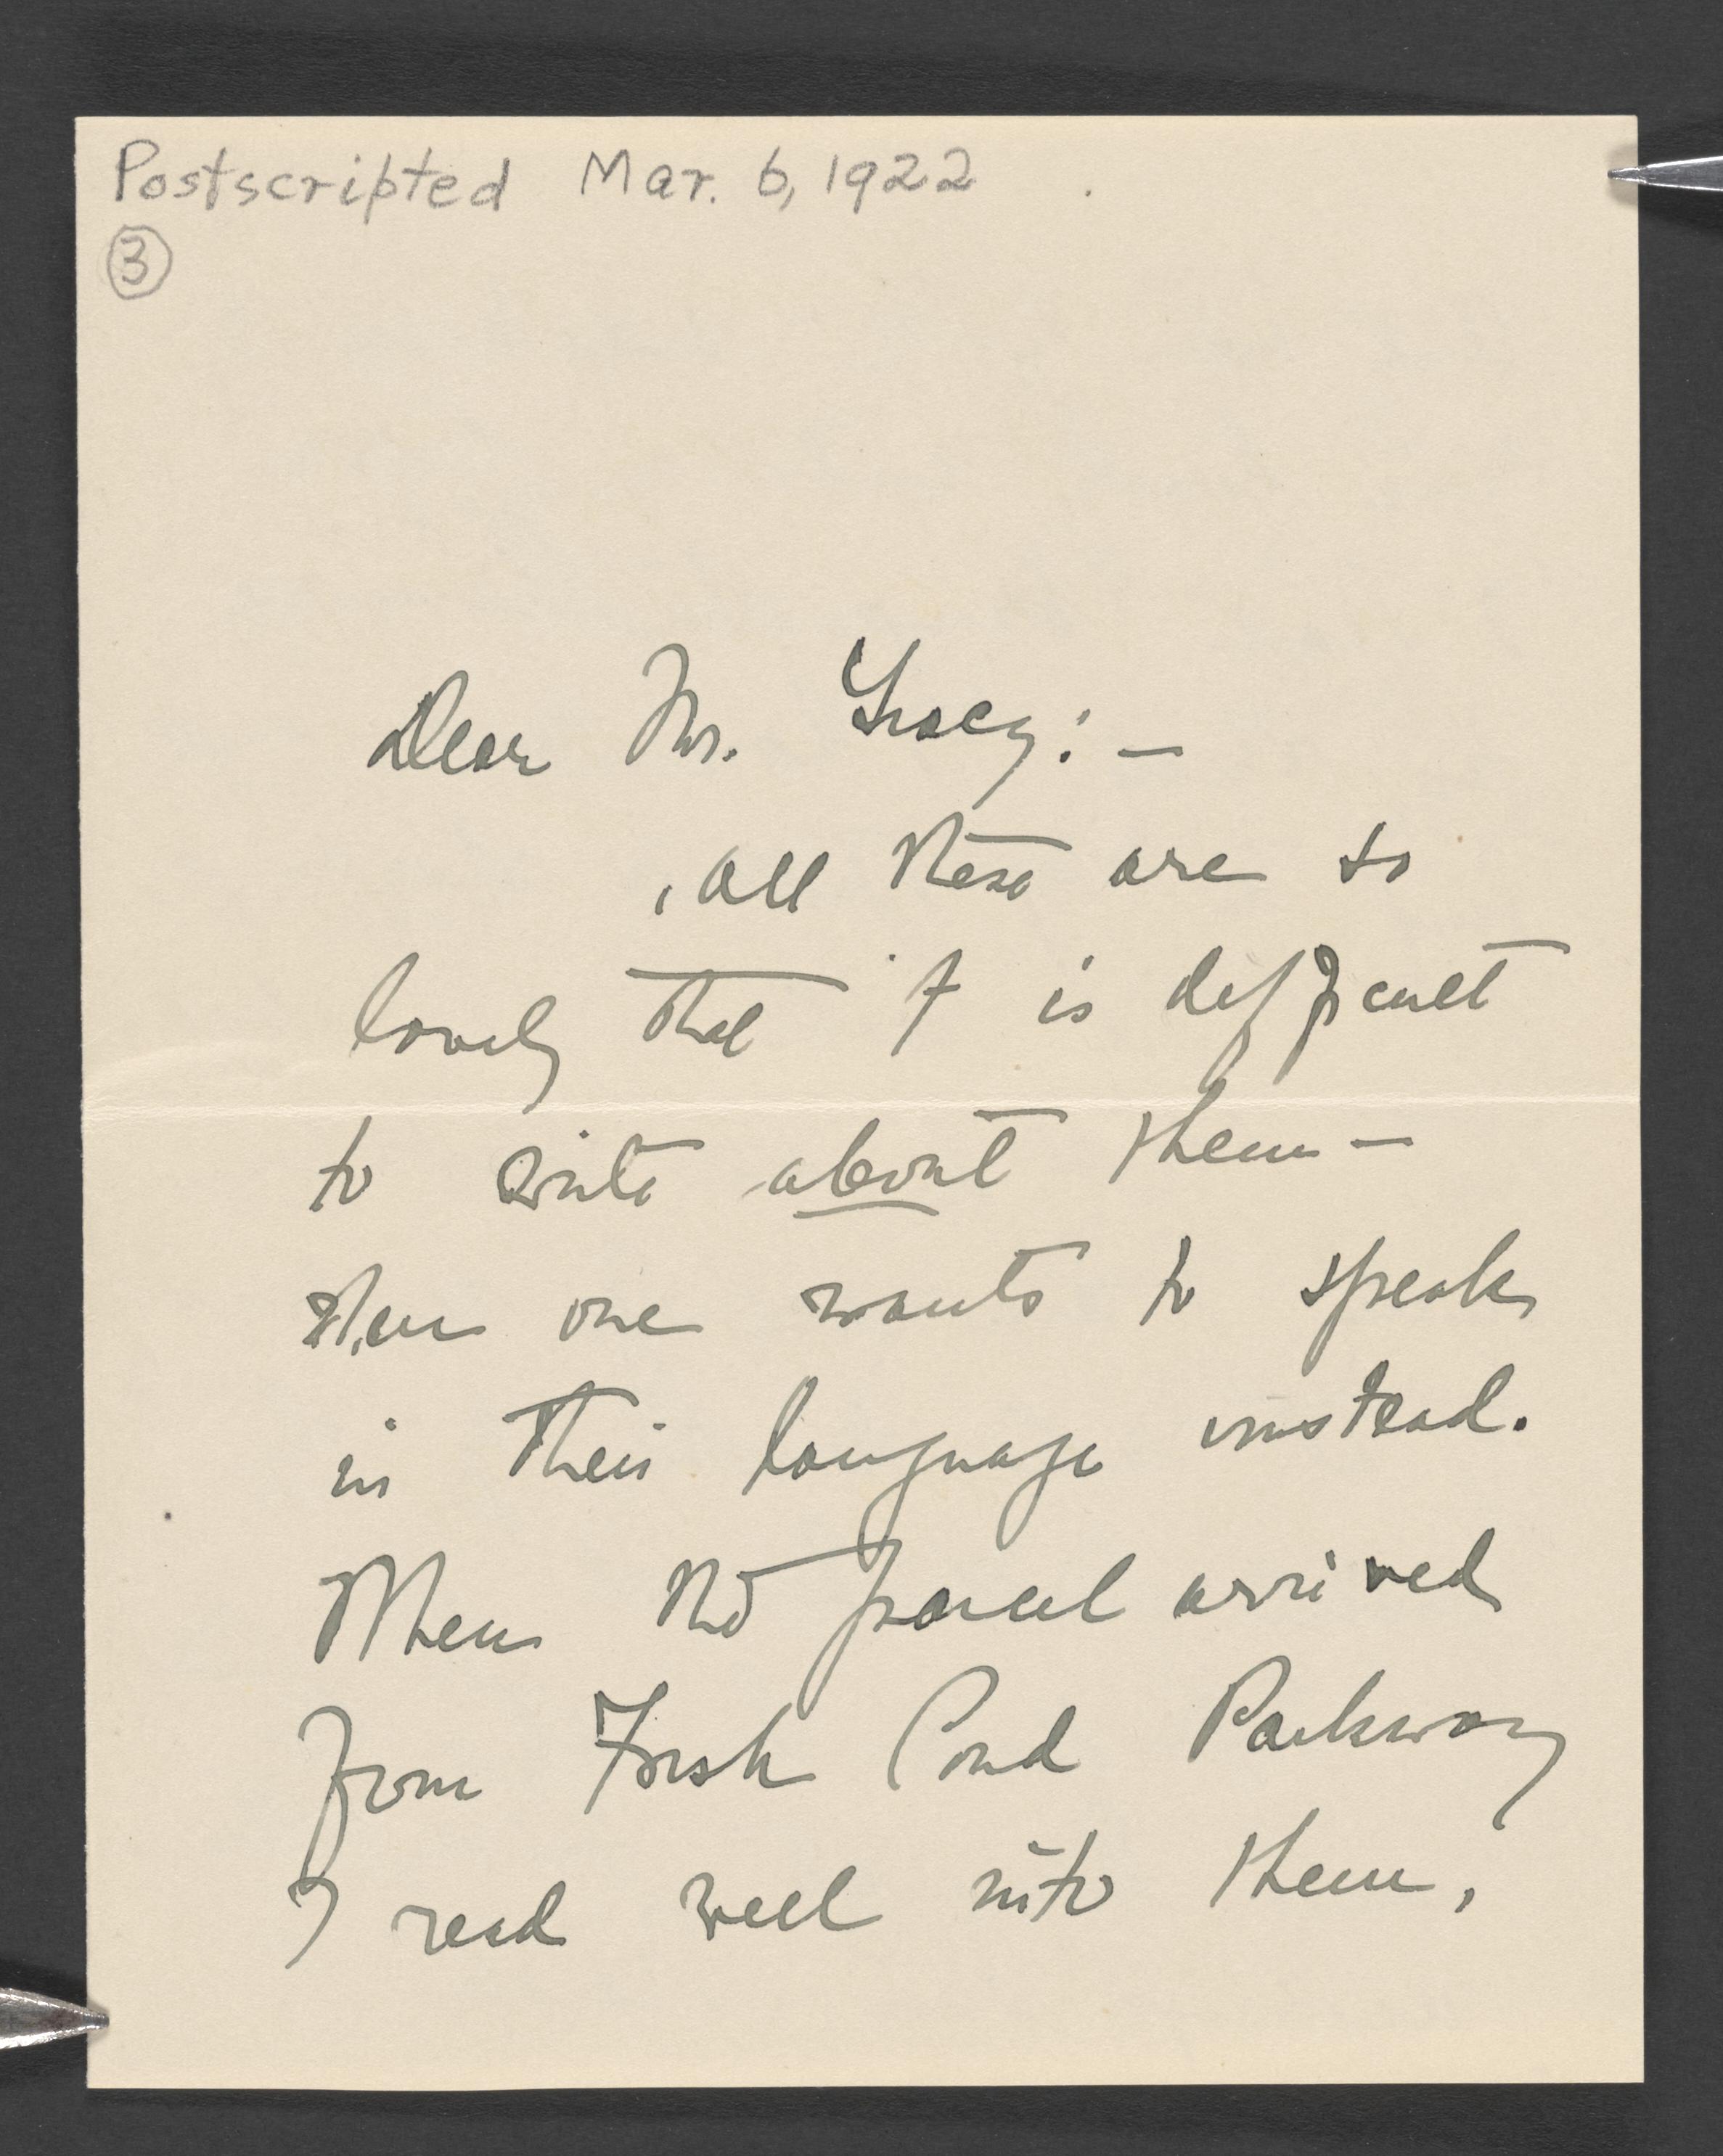 Postscripted Mar. 6, 1922
③
Dear Mr. Tracy: —
All these are so
lovely that it is difficult
to write about them —
then one wants to speak
in their language instead.
When the parcel arrived
from Fresh Pond Parkway
I read well into them,